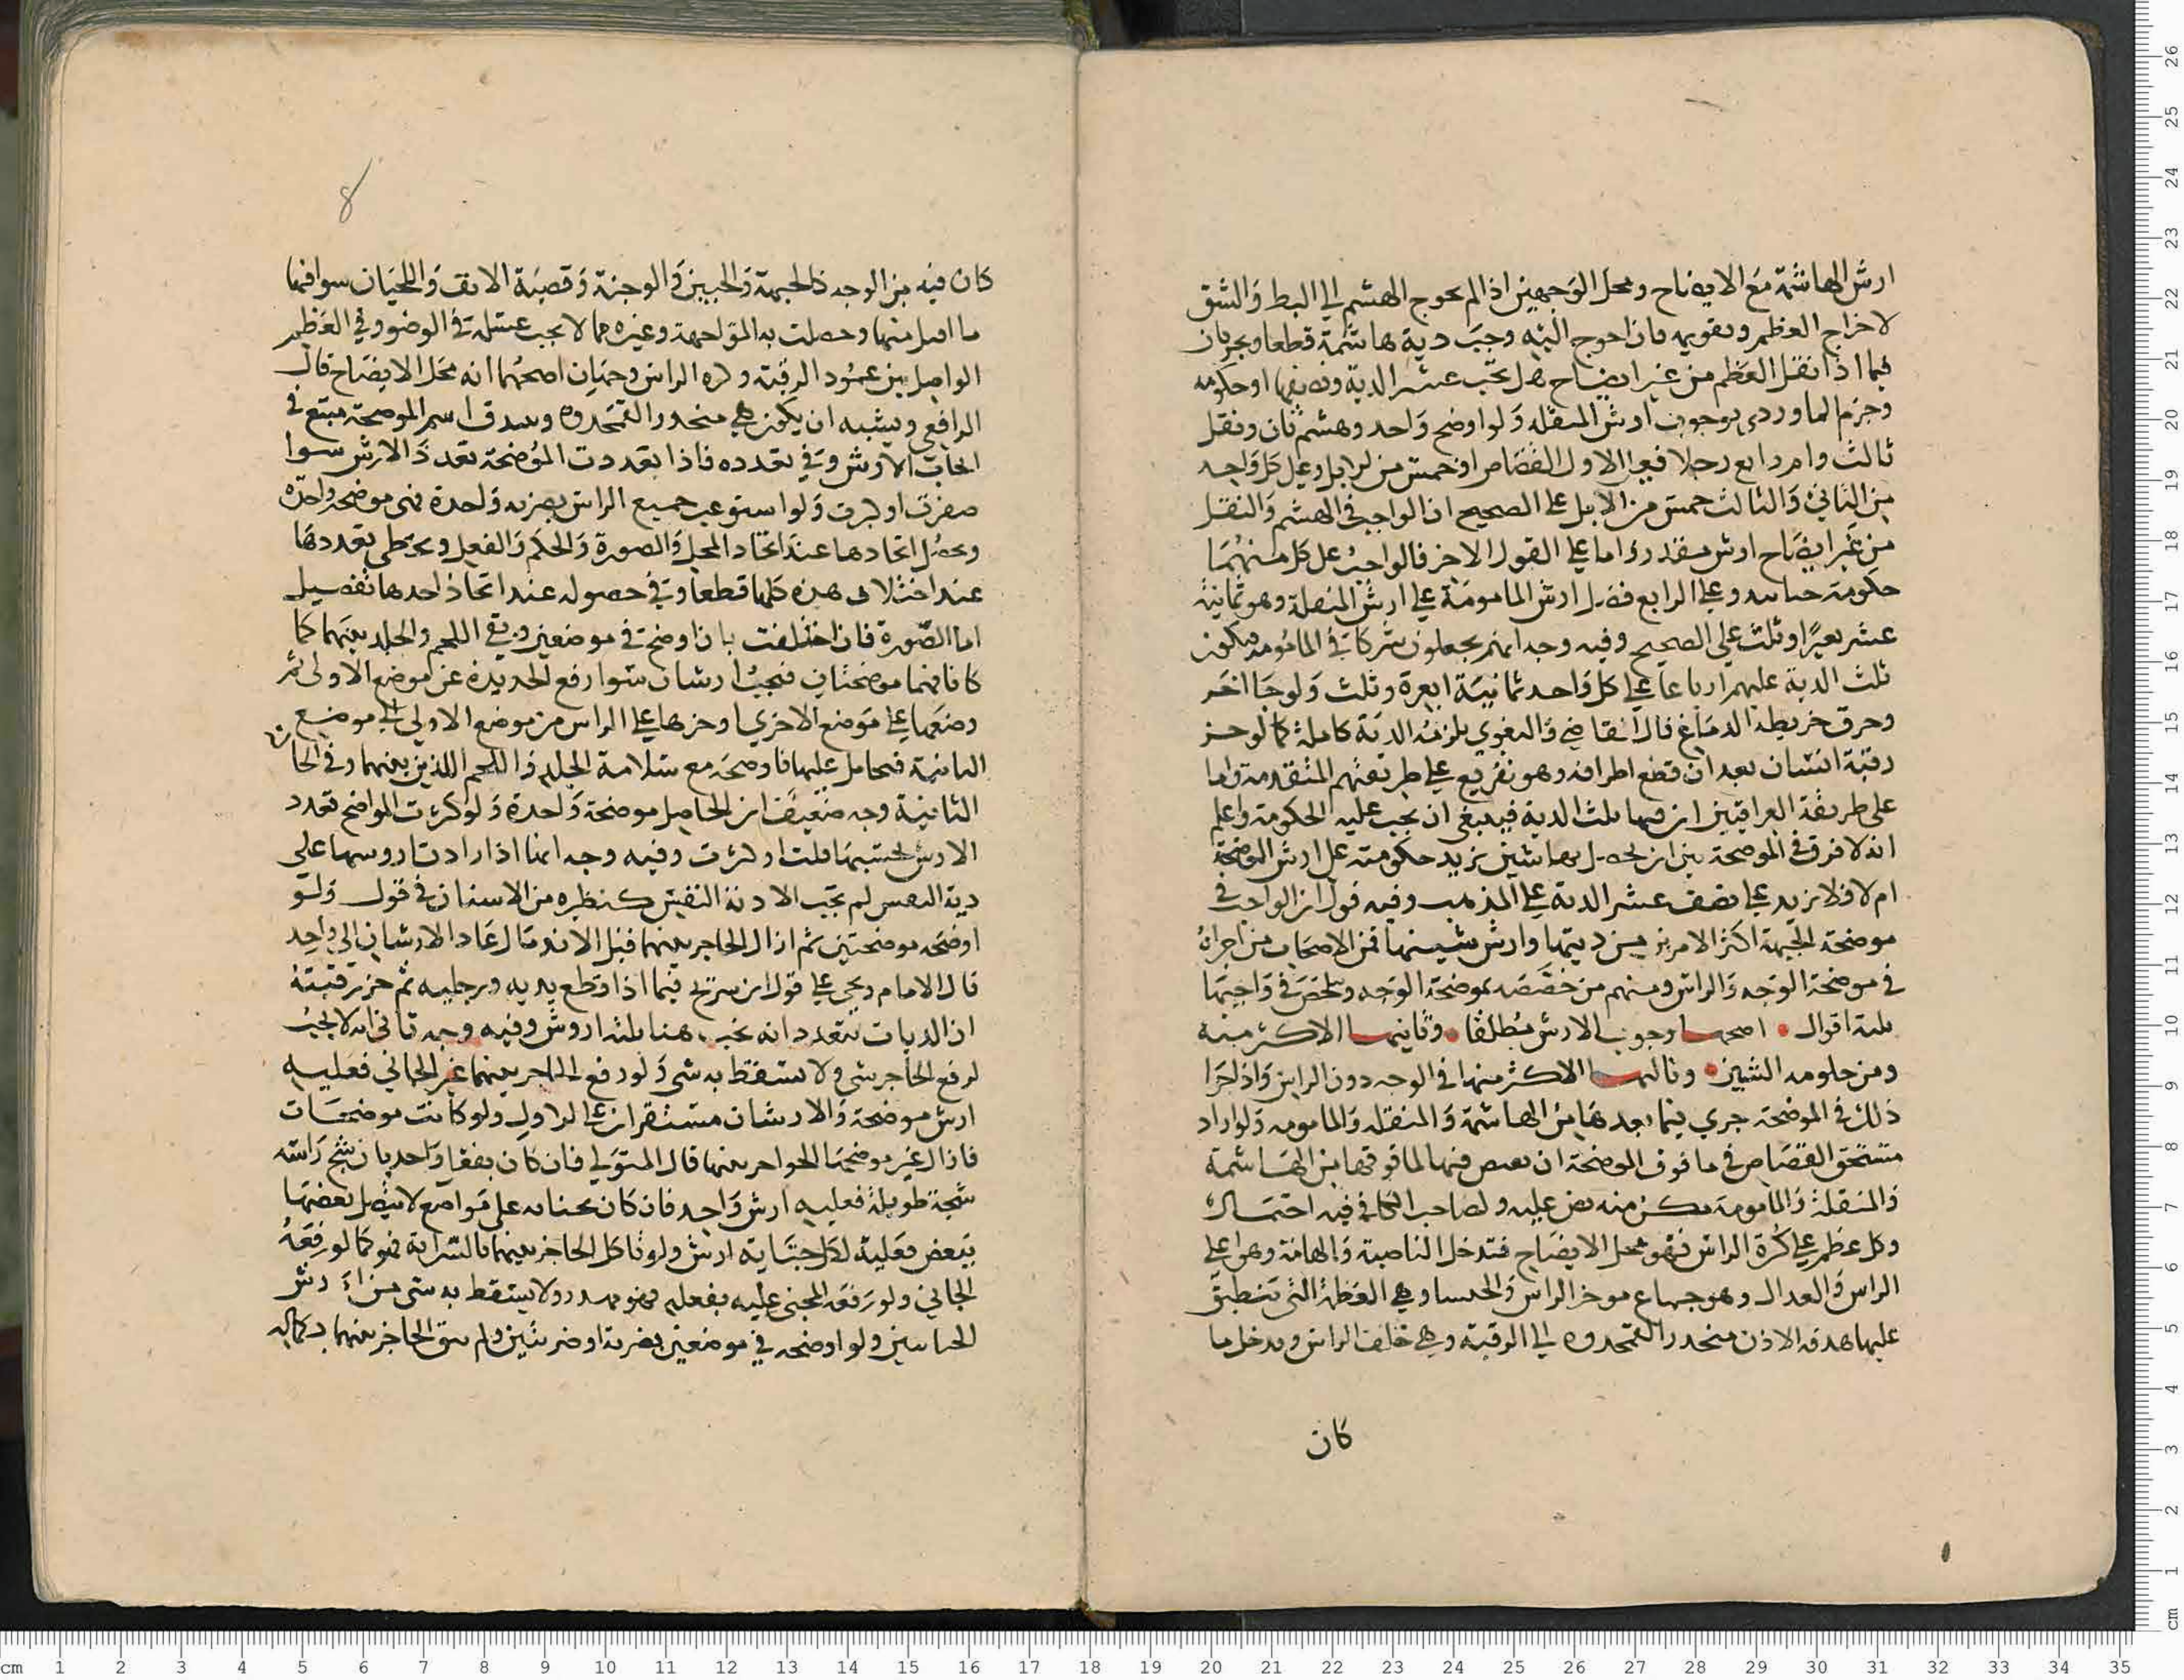 ارش الهاشمة مع الايضاح ومحل الوجهين اذا لم يحوج الهشم الي البط والشق
لاخراج العظم وتقويمه فان احوج اليه وجبت دية هاشمة قطعا ويجريان
فيما اذا نقل العظم من غير ايضاح هل تجب عشر الدية ونصفها او حكومه
وجزم الماوردي بوجوب ارش المنقله ولو اوضح واحد وهشم ثان ونقل
ثالث وام رابع رجلا فعلي الاول القصاص او خمس من الابل وعلي كل واحد
من الثاني والثالث خمس من الابل علي الصحيح ان الواجب في الهشم والنقل
من غير ايضاح ارش مقدر واما علي القول الاخر فالواجب علي كل منهما
حكومة جنايته وعلي الرابع فضل ارش المامومة علي ارش المنقلة وهو ثمانية
عشر بعيرا وثلث علي الصحيح وفيه وجه انهم يجعلون شركا في المامومه فيكون
ثلث الدية عليهم ارباعا علي كل واحد ثمانية ابعرة وثلث ولو جا اخر
وخرق خريطة الدماغ قال القاضي والبغوي يلزمه الدية كاملة كما لو حز
رقبة انسان بعد ان قطع اطرافه وهو تفريع علي طريقتهم المتقدمة واما
علي طريقة العراقيين ان فيها ثلث الدية فينبغي ان يجب عليه الحكومة واعلم
انه لا فرق في الموضحة بين ان يحصل بها شين يزيد حكومته علي ارش الموضحة
ام لا فلا يزيد علي نصف عشر الدية علي المذهب وفيه قول ان الواجب في
موضحة الجبهة اكثر الامرين من ديتها وارش شينها فمن الاصحاب من اجراه
في موضحة الوجه والراس ومنهم من خصصه بموضحة الوجه وتلخص في واجبها
ثلثة اقوال اصحها وجوب الارش مطلقا وثانيها الاكثر منه
ومن حكومه الشين وثالثها الاكثر منهما في الوجه دون الراس واذا جرا
ذلك في الموضحة جري فيما بعدها من الهاشمة والمنقله والمامومه ولو اراد
مستحق القصاص في ما فوق الموضحة ان يقتص فيها لما فوقها من الهاشمة
والمنقلة والمامومة مكن منه نص عليه ولصاحب الكافي فيه احتمال
وكل عظم علي كرة الراس فهو محل الايضاح فتدخل الناصية والهامة وهو اعلي
الراس والقذال وهو جماع موخر الراس والخشسا وهي العظمة التي تنطبق
عليها صدفه الاذن منحدر القمحدوه الي الرقبة وهي خلف الراس ويدخل ما
كان
8
كان فيه من الوجه كالجبهة والجبين والوجنة وقصبة الانف واللحيان سوا فيما
ما اقبل منها وحصلت به المواجهة وغيره مما لا يجب غسله في الوضو وفي العظم
الواصل بين عمود الرقبة وكره الراس وجهان اصحهما انه محل الايضاح قال
الرافعي ويشبه ان يكون هي منحدر القمحدوه وصدق اسم الموضحة متبع في
ايجاب الارش وفي تعدده فاذا تعددت الموضحة تعدد الارش سوا
صغرت او كبرت ولو استوعب جميع الراس بضربه واحدة فهي موضحه واحده
ويحصل اتحادها عند اتحاد المحل والصورة والحكم والفعل ويحكم بتعددها
عند اختلاف هذه كلها قطعا وفي حصوله عند اتحاد احدها تفصيل
اما الصورة فان اختلفت بان اوضح في موضعين وبقي اللحم والجلد بينهما كما
كانا فهما موضحتان فيجب ارشان سوا رفع الحديدة عن موضع الاولي ثم
وضعها علي موضع الاخري او جرها علي الراس من موضع الاولي الي موضع
الثانية فتحامل عليها فاوضحه مع سلامة الجلد واللحم اللذين بينهما وفي الحالة
الثانية وجه ضعيف ان الحاصل موضحة واحدة ولو كثرت المواضح تعدد
الارش بحسبها قلت او كثرت وفيه وجه انها اذا زادت اروشها علي
دية النفس لم تجب الا دية النفس كنظيره من الاسنان في قول ولو
اوضحه موضحتين ثم ازال الحاجز بينهما قبل الاندمال عاد الارشان الي واحد
قال الامام ويجي علي قول ابن سريج فيما اذا قطع يديه ورجليه ثم حز رقبته
ان الديات تتعدد انه يجب هنا ثلثة اروش وفيه وجه ثاني انه لا يجب
لرفع الحاجز شي ولا يسقط به شي ولو رفع الحاجز بينهما غير الجاني فعليه
ارش موضحة والارشان مستقران علي الاول ولو كانت موضحات
فازال غير موضحها الحواجز بينها قال المتولي فان كان بفعل واحد بان شج راسه
شجة طويلة فعليه ارش واحد فان كان بجنايه علي مواضع لا يتصل بعضها
ببعض فعليه لكل جناية ارش ولو تاكل الحاجز بينهما بالسراية فهو كما لو رفعه
الجاني ولو رفعه المجني عليه بفعله فهو هدر ولا يسقط به شي من ارش
الجنايتين ولو اوضحه في موضعين بضربة او ضربتين ولم يبق الحاجز بينهما بكماله